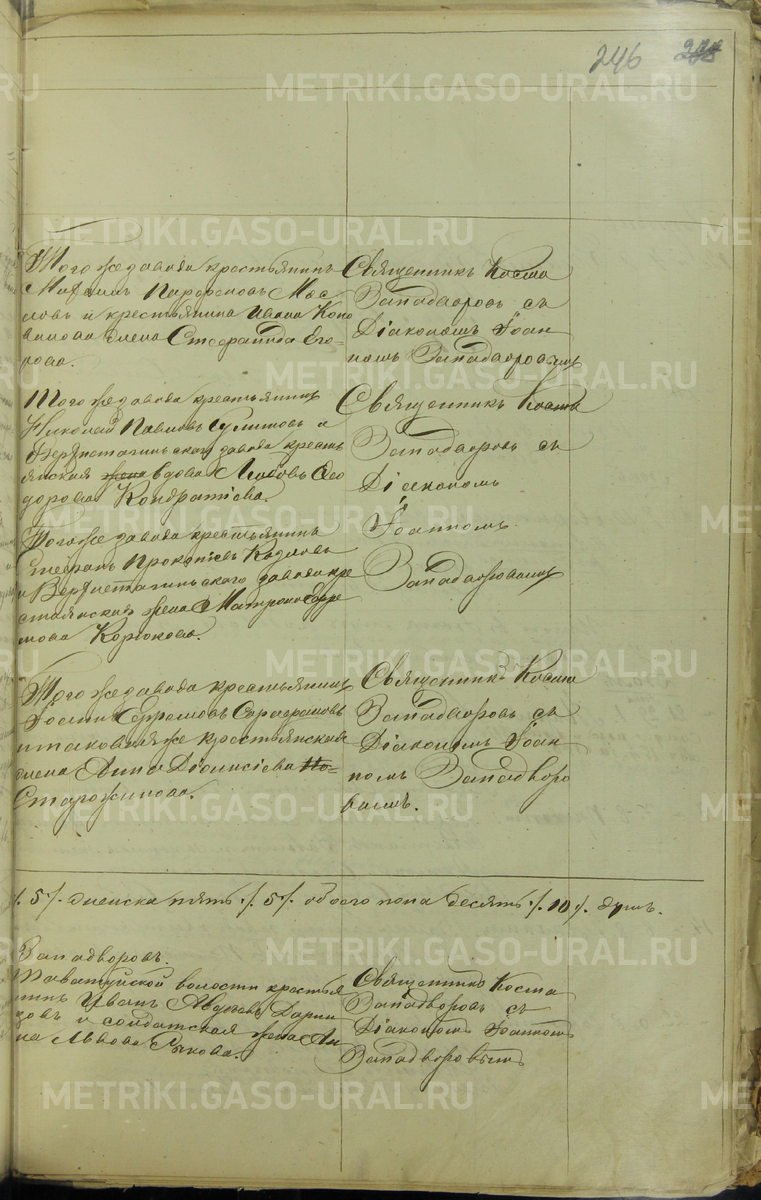 246
Того же завода крестьянинъ
Михаилъ Парфеновъ Мас
ловъ и крестьянина Ивана Коно
валова жена Стефанида Его-
рова.
Священникъ Косма
Западворовъ съ
Діакономъ Іоан
номъ Западворовымъ
Того же завода крестьянинъ
Николай Павловъ Сулимовъ и
Верхнетагильскаго завода кресть
янская жена вдова Любовь Ѳео
дорова Кондратіева.
Священникъ Косма
Западворовъ съ
Діакономъ
Іоанномъ
Западворовымъ
Того же завода крестьянинъ
Стефанъ Прокопіевъ Козловъ
и Верхнетагильского завода кре
стьянская жена Матрона Ефре
мова Корюкова.
Того же завода крестьянинъ
Іоаннъ Ефремовъ Серафимовъ
и таковая же крестьянская
жена Анна Діонисіева Но-
Старожилова.
Священникъ Косма
Западворовъ съ
Діакономъ Іоан
номъ Западворо
вымъ.
/. 5 /. женска пять /. 5 /. обоего пола десять /. 10 /. душъ.
Западворовъ.
Таватуйской волости крестья
нинъ Иванъ Авдѣевъ Дани
ловъ и солдатская жена Ан
на Львова Рыкова.
Священникъ Косма
Западворовъ съ
Діакономъ Іоанномъ
Западворовымъ
METRIKI.GASO-URAL.RU